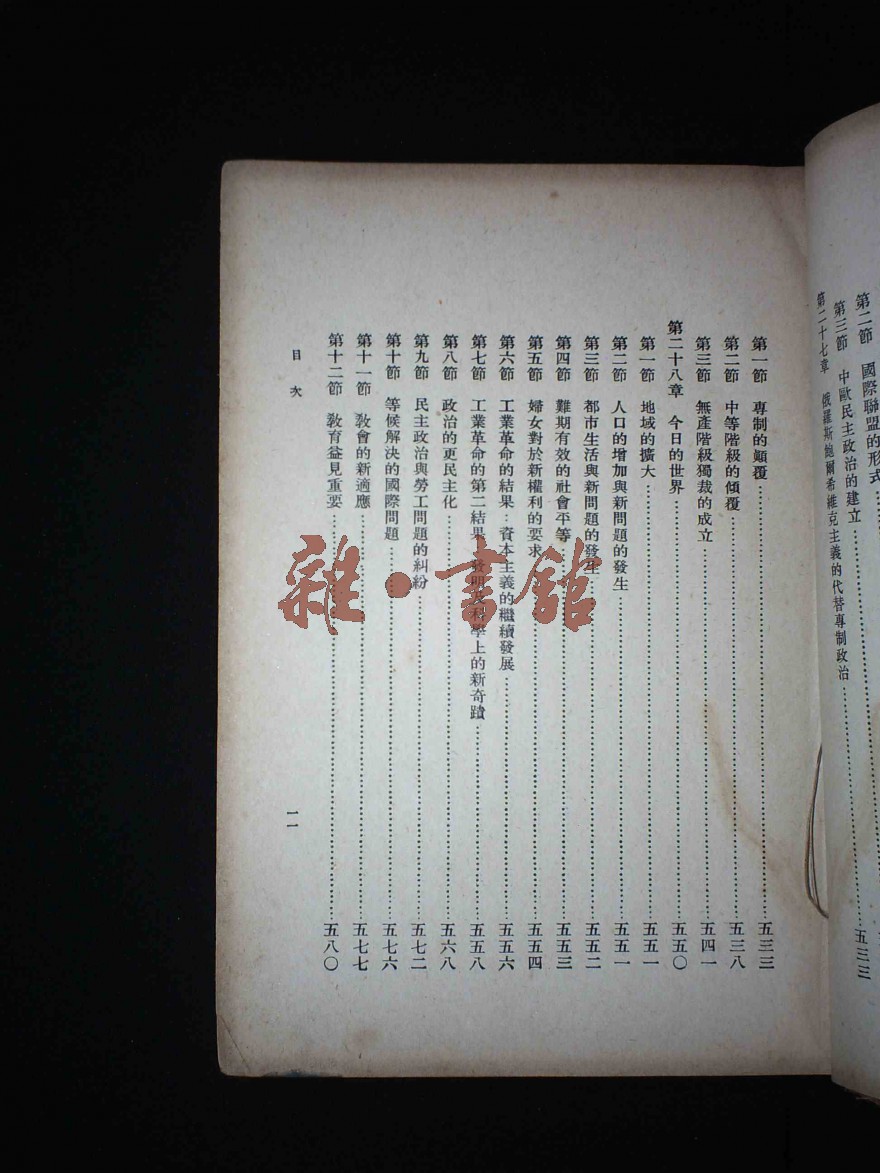 第二節　國際聯盟的形式
第三節　中歐民主政治的建立
第二十七章　俄羅斯鮑爾希維克主義的代替專制政治……五三三
第一節　專制的顛覆……五三三
第二節　中等階級的傾覆……五三八
第三節　無產階級獨裁的成立……五四一
第二十八章　今日的世界……五五〇
第一節　地域的擴大……五五一
第二節　人口的增加與新問題的發生……五五一
第三節　都市生活與新問題的發生……五五二
第四節　難期有效的社會平等……五五三
第五節　婦女對於新權利的要求……五五四
第六節　工業革命的結果：資本主義的繼續發展……五五六
第七節　工業革命的第二結果：發明及科學上的新奇蹟……五五八
第八節　政治的更民主化……五六八
第九節　民主政治與勞工問題的糾紛……五七二
第十節　等候解決的國際問題……五七六
第十一節　教會的新適應……五七七
第十二節　教育益見重要……五八〇
目次
一一
雜·書館